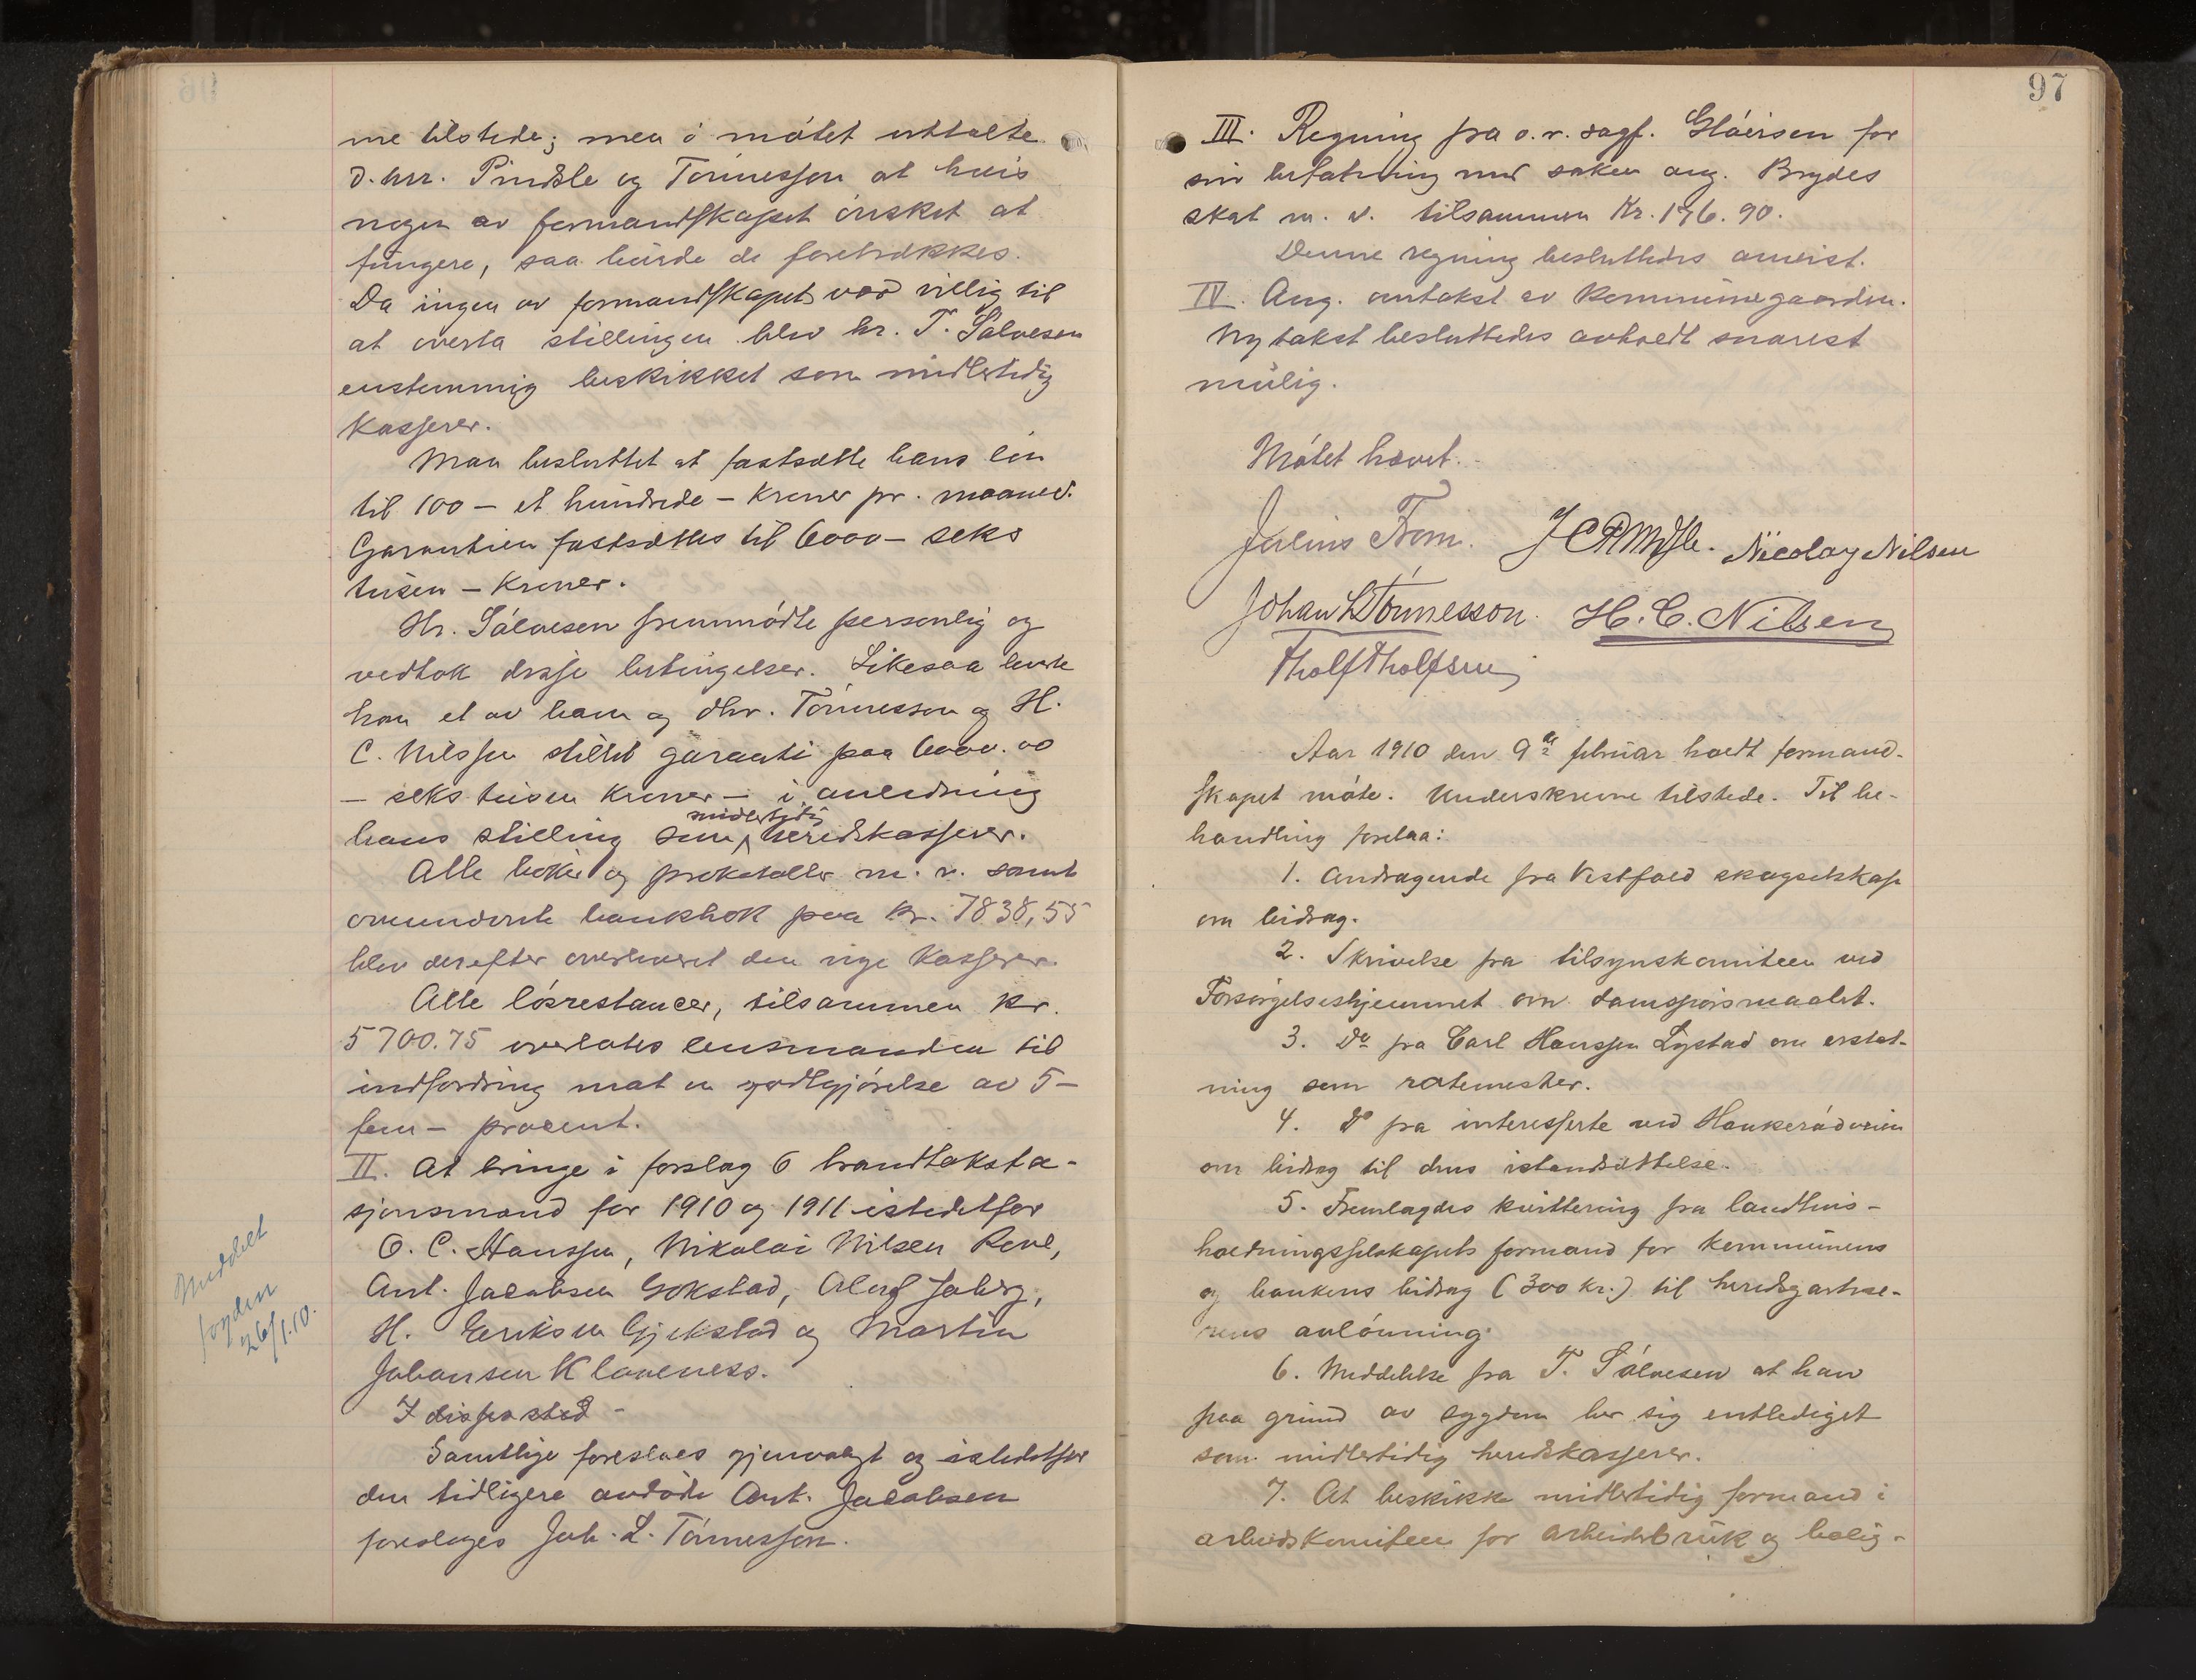 me tilstede; men i møtet uttalte
d.hrr. Pindsle og Tønnessen at hvis
nogen av formandskapet ønsket at
fungere, saa burde de foretrækkes.
Da ingen av formandskapet var villig til
at overta stillingen blev hr. T. Salvesen
enstemmig beskikket som midlertidig
kasserer.
Man besluttet at fastsætte hans løn
til 100 – et hundrede – kroner pr. maaned.
Garantien fastsættes til 6000 – seks
tusen – kroner.
Hr. Sálvesen fremmødte personlig og
vedtok disse betingelser. Likesaa leverte
han et av ham og dhr. Tønnesson og H.
C. Nilssen stillet garanti paa 6000.00
– seks tusen kroner – i anledning
hans stilling som midlertidig heredskasserer.
Alle bøker og protokoller m. v. samt
ovennævnte bankbok paa kr. 7838,55
blev derefter overleveret den nye kasserer.
Alle løsrestancer, tilsammen kr.
5700.75 overlates lensmanden til
indfordring mot en godtgjørelse av 5 –
fem – procent.
II. At bringe i forslag 6 brandtaksta-
sjonsmænd for 1910 og 1911 istedetfor
O. C. Hanssen, Nikolai Nilsen Reve,
Ant. Jacobsen Gokstad, Oluf Joberg,
H. Eriksen Gjekstad og Martin
Johansen Klaveness.
Samtlige foreslaes gjenvalgt og istedetfor
den tidligere avdøde Ant. Jacobsen
foreslages Joh. L. Tønnessen.
Meddelt
fogden
26/1.10.
97
III. Regning fra o.r. sagf. Gløersen for
sin befatning med saken ang. Brydes
skat m. v. tilsammen Kr. 176.90.
Denne regning besluttedes anvist.
IV. Ang. omtakst av kommunegaarden.
Ny takst besluttedes avholdt snarest
mulig.
Møtet hævet.
Julius Fom. J C Pindsle. Nicolay Nilsen
Johan L Tønnesson. H. C. Nilsen
Tholf Tholfsen
Aar 1910 den 9de februar holdt formand-
skapet møte. Underskrevne tilstede. Til be-
handling forelaa:
1. Andragende fra Vestfold skogselskap
om bidrag.
2. Skrivelse fra tilsynskomiteen ved
Forsørgelseshjemmet om damspørsmaalet.
3. Do fra Carl Hanssen Lystad om erstat-
ning som rotemester.
4. Do fra interesserte ved Haukerødveien
om bidrag til dens istandsættelse.
5. Fremlagdes kvittering fra landhus-
holdningsselskapets formand for kommunens
og bankens bidrag (300 kr.) til heredsgartne-
rens avlønning.
6. Meddelelse fra T. Sálvesen at han
paa grund av sygdom ber sig entlediget
som midlertidig heredskasserer.
7. At beskikke midlertidig formand i
arbeidskomiteen for arbeidsbruk og bolig-